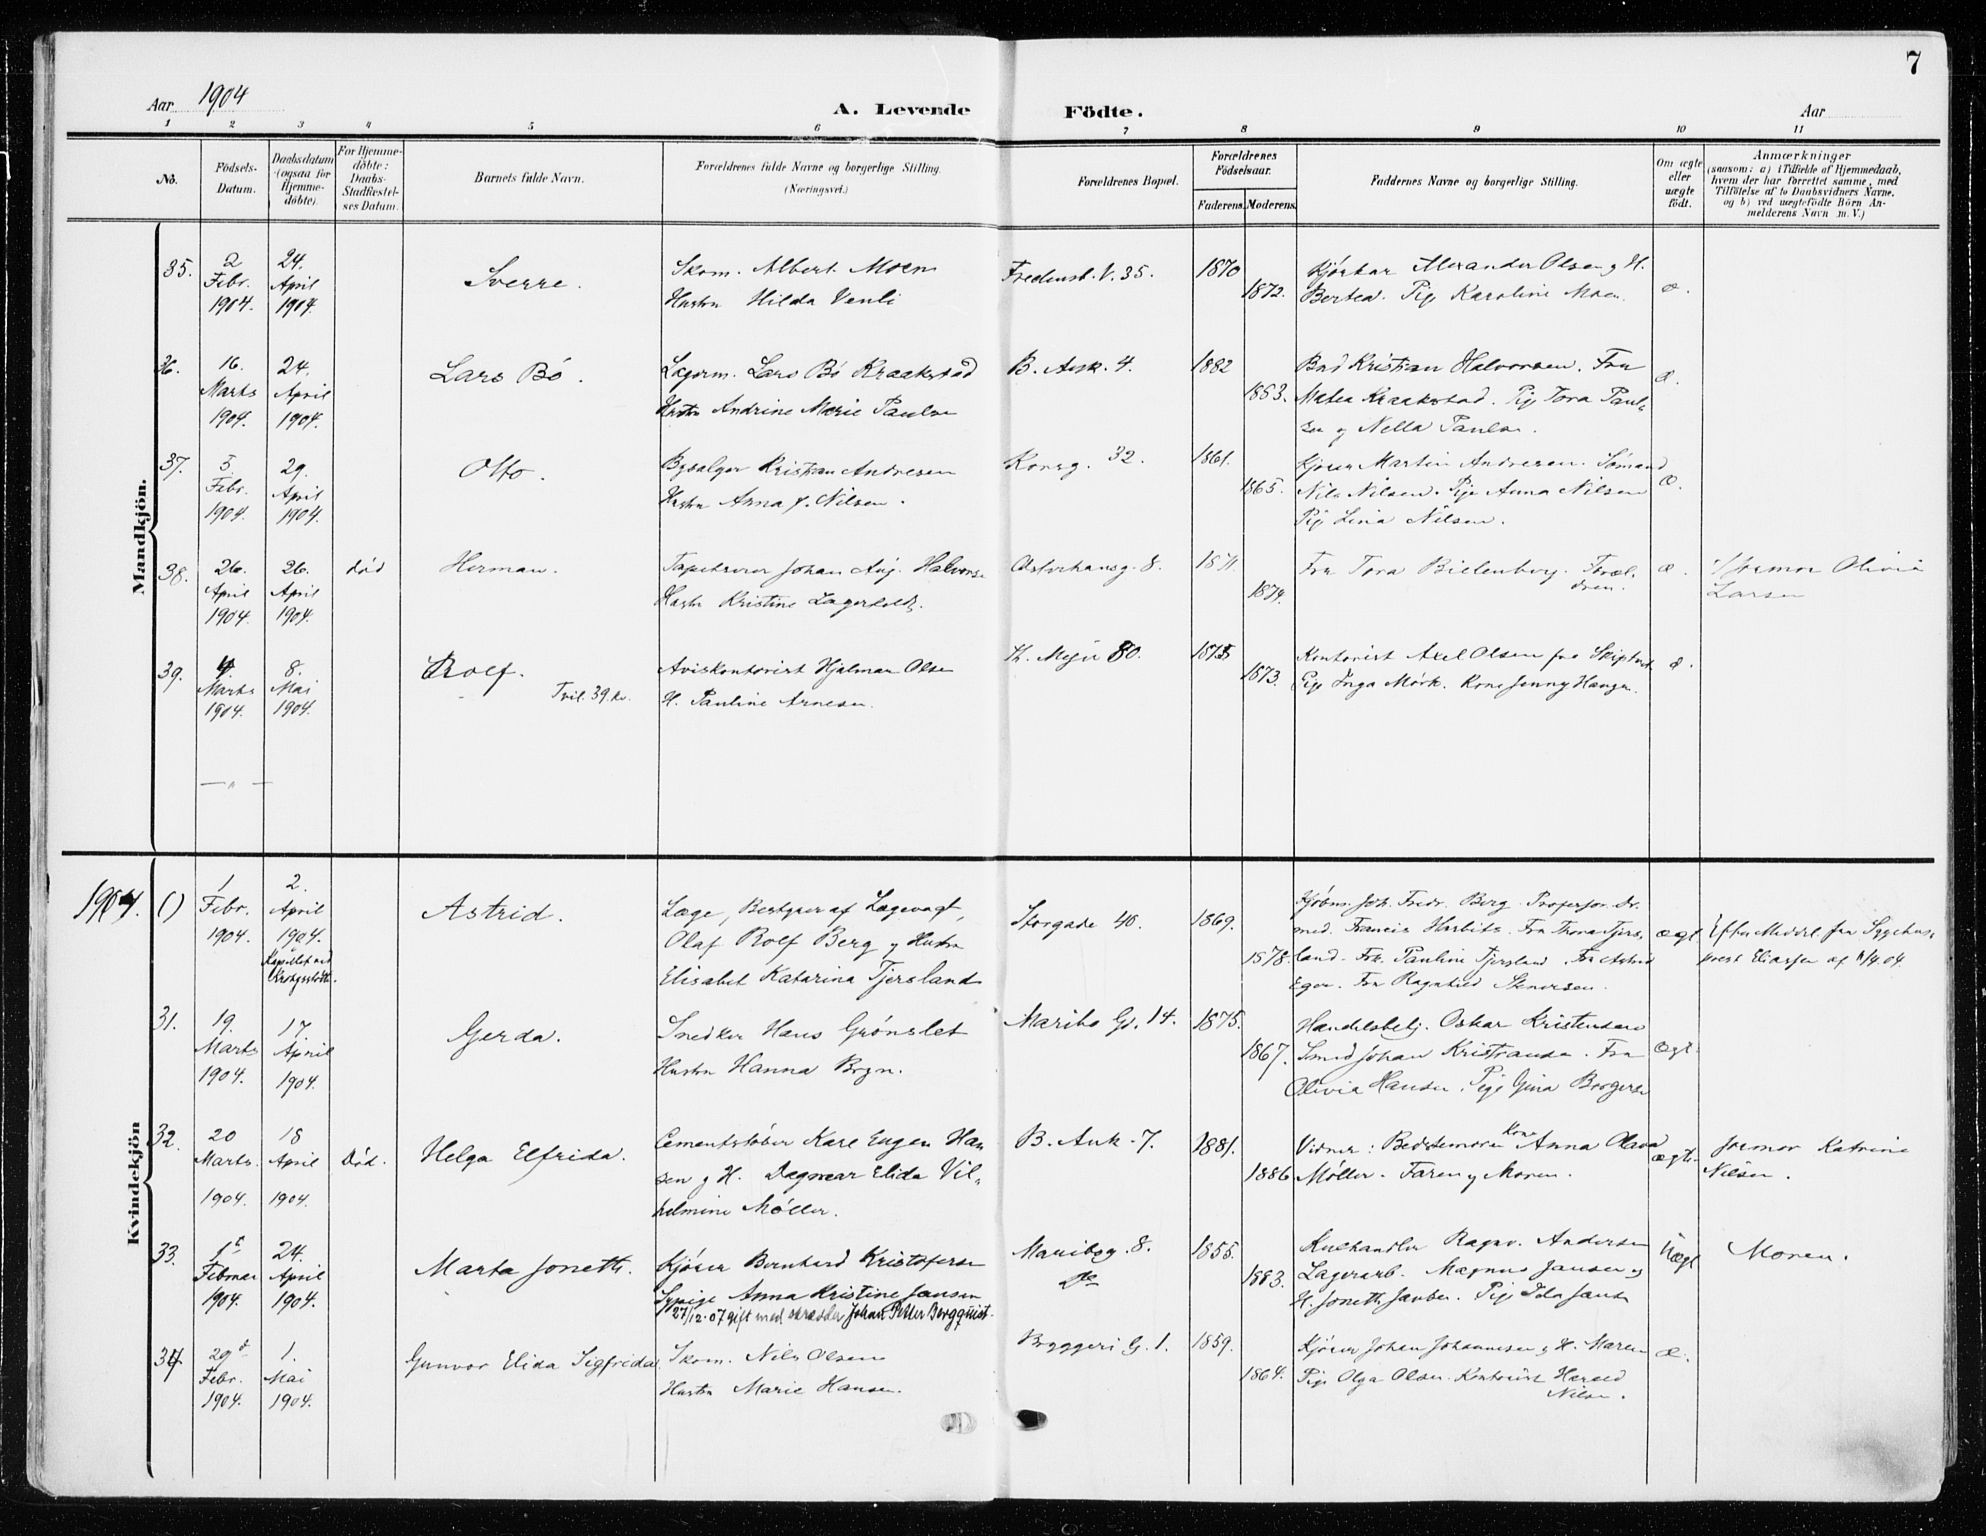 7
Aar 1904
A. Levende
Födte.
Aar
1 2 3 4 5 6 7 8 9 10 11
No.
Födsels-Datum.
Daabsdatum (ogsaa for Hjemmedöbte).
For Hjemmedöbte: Daabs-Stadfæstelses Datum.
Barnets fulde Navn.
Forældrenes fulde Navne og borgerlige Stilling.
(Næringsvei.)
Forældrenes Bopæl.
Forældrenes Födselsaar.
Faderens. Moderens.
Faddernes Navne og borgerlige Stilling.
Om ægte eller uægte födt.
Anmærkninger
(saasom: a) i Tilfælde af Hjemmedaab,
hvem der har forrettet samme, med
Tilföielse af to Daabsvidners Navne.
og b) ved uægtefödte Börn An-
melderens Navn m. V.)
Mandkjön.
35. 2 Febr. 1904. 24. April 1904. Sverre.
Skom. Albert Moen
Hustru Hilda Venli
Fredensb. V. 35. 1870 1872.
Alexander Olsen og H.
Bertea. Pige Karoline Moen.
æ.
36. 16. Marts 1904. 24. April 1904. Lars Bö.
Lagerm. Lars Bö Kraakstad
Hustru Andrine Marie Paulse
B. Ank. 4. 1882 1883.
Kristian Halvorsen. Fru
Matea Kraakstad. Pige Tora Paul-
sen og Nella Paulse.
æ.
37. 5. Febr. 1904. 29. April 1904. Otto.
Bysalger Kristian Andresen
Hustru Anna f. Nilsen.
Korsg. 32. 1861. 1865.
Kjører Martin Andresen. Sømand
Nils Nilsen. Pige Anna Nilsen
Pige Lina Nilsen.
æ.
38. 26. April 1904. 26. April 1904. död Herman.
Tapetserer Johan Aug. Halvorse
Hustr Kristine Lagerholdt.
8. 1871. 1874.
Fru Tora Bielenberg. Foræl-
dren.
æ. Jormor Olivia
Larsen
39. 4. Marts 1904. 8. Mai 1904. Rolf.
Tvil. 39. kv.
Aviskontorist Hjalmar Olse
H. Pauline Arnesen.
Th. Meyer 80. 1873.
Kontorist Axel Olsen fra
Pige Inga Mörk. Kone Jenny Hansen.
æ.
— „ —
Kvindekjön
1904. () 1 Febr. 1904. 2. April 1904. Kapellet ved Krohgsstötte. Astrid.
Læge, Bestyrer af Lægevagt,
Olaf Rolf Berg og Hustru
Elisabet Katarina Tjersland
Storgade 40. 1869. 1878.
Kjöbm. Joh. Fredr. Berg. Professor Dr.
med. Francis Harbitz. Fru Thora Tjers-
land. Frk. Pauline Tjersland. Fru Astrid
Eger. Fru Ragnhild Stenersen.
ægt Efter Meddel. fra Sygehus-
prest Eliassen af
31. 19. Marts 1904. 17. April 1904. Gerda.
Snedker Hans Grönslet
Hustru Hanna Bryn.
Maribo Gd. 14. 1875. 1867.
Handelsbetj. Oskar Kristensen
Smed Johan Kristiansen. Fru
Olivia Hansen. Pige Gina Borgerse
ægt.
32. 20 Marts. 1904. 18 April 1904. Död. Helga Elfrida.
Cementstöber Karl Eugen Han-
sen og H. Dagmar Elida Vil-
helmine Möller.
B. Ank. 7. 1881. 1886
Vidner: Bedstemoren Kone Anna Olava
Møller. Faren og Moren.
ægte. Jormor Katrine
Nilsen.
33. 1ste Februar 1904. 24. April 1904. Marta Joneth.
Kjörer Bernhard Kristofersen
Sypige Anna Kristine Jansen
27/12-07 gift med skrædder Johan Petter Bergquist.
Maribog. 8. 1855. 1883.
Kulhandler Ragnv. Andersen
Lagerarb. Magnus Jansen og
H. Joneth Pige Ida Janse
Uægt Moren.
34. 29de Febr. 1904. 1. Mai 1904. Gunvor Elida Sigfrida
Skom. Nils Olsen
Hustru Marie Hansen.
Bryggeri G. 1. 1859. 1864.
Kjörer Johan Johannesen og H. Maren
Pige Olga Olsen. Kontorist Harald
Nilse.
æ.